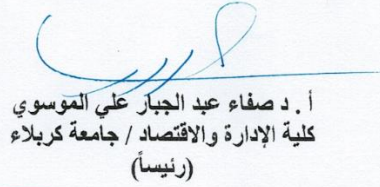 أ. د صفاء عبد الجبار علي الموسوي
كلية الإدارة والاقتصاد / جامعة كربلاء
(رئيساً)